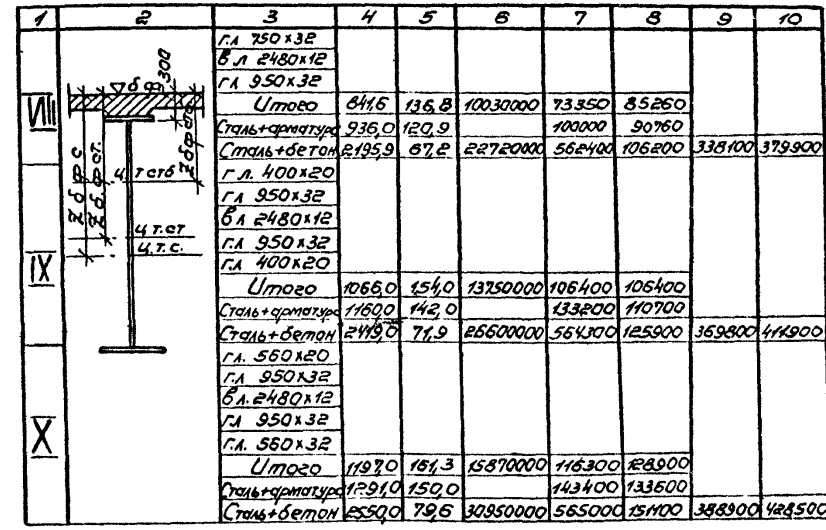 1 2 3 4 5 6 7 8 9 10
г.л 750 x 32
в л 2480x12
гл 950x32
Итого 841,6 136,8 10030000 73350 85260
Сталь+арматура 936,0 120,9 100000 90760
Сталь+бетон 2195,9 67,2 22720000 562400 106200 338100 379900
VIII
300
Ц. т стб
ц т.ст
ц.т.с.
г л. 400x20
гл 950x32
в л 2480x12
г.л 950x32
г.л 400x20
Итого 1066,0 154,0 13750000 106400 106400
Сталь+арматура 1160,0 142,0 133200 110700
Сталь+бетон 2419,0 71,9 26600000 564300 125900 369800 411900
IX
гл. 560x20
г.л 950x32
в л. 2480x12
гл 950x32
г.л. 560x32
Итого 1197,0 161,3 15870000 116300 128900
Сталь+арматура 1291,0 150,0 143400 133600
Сталь+бетон 2550,0 79,6 30950000 565000 151100 388900 428500
X